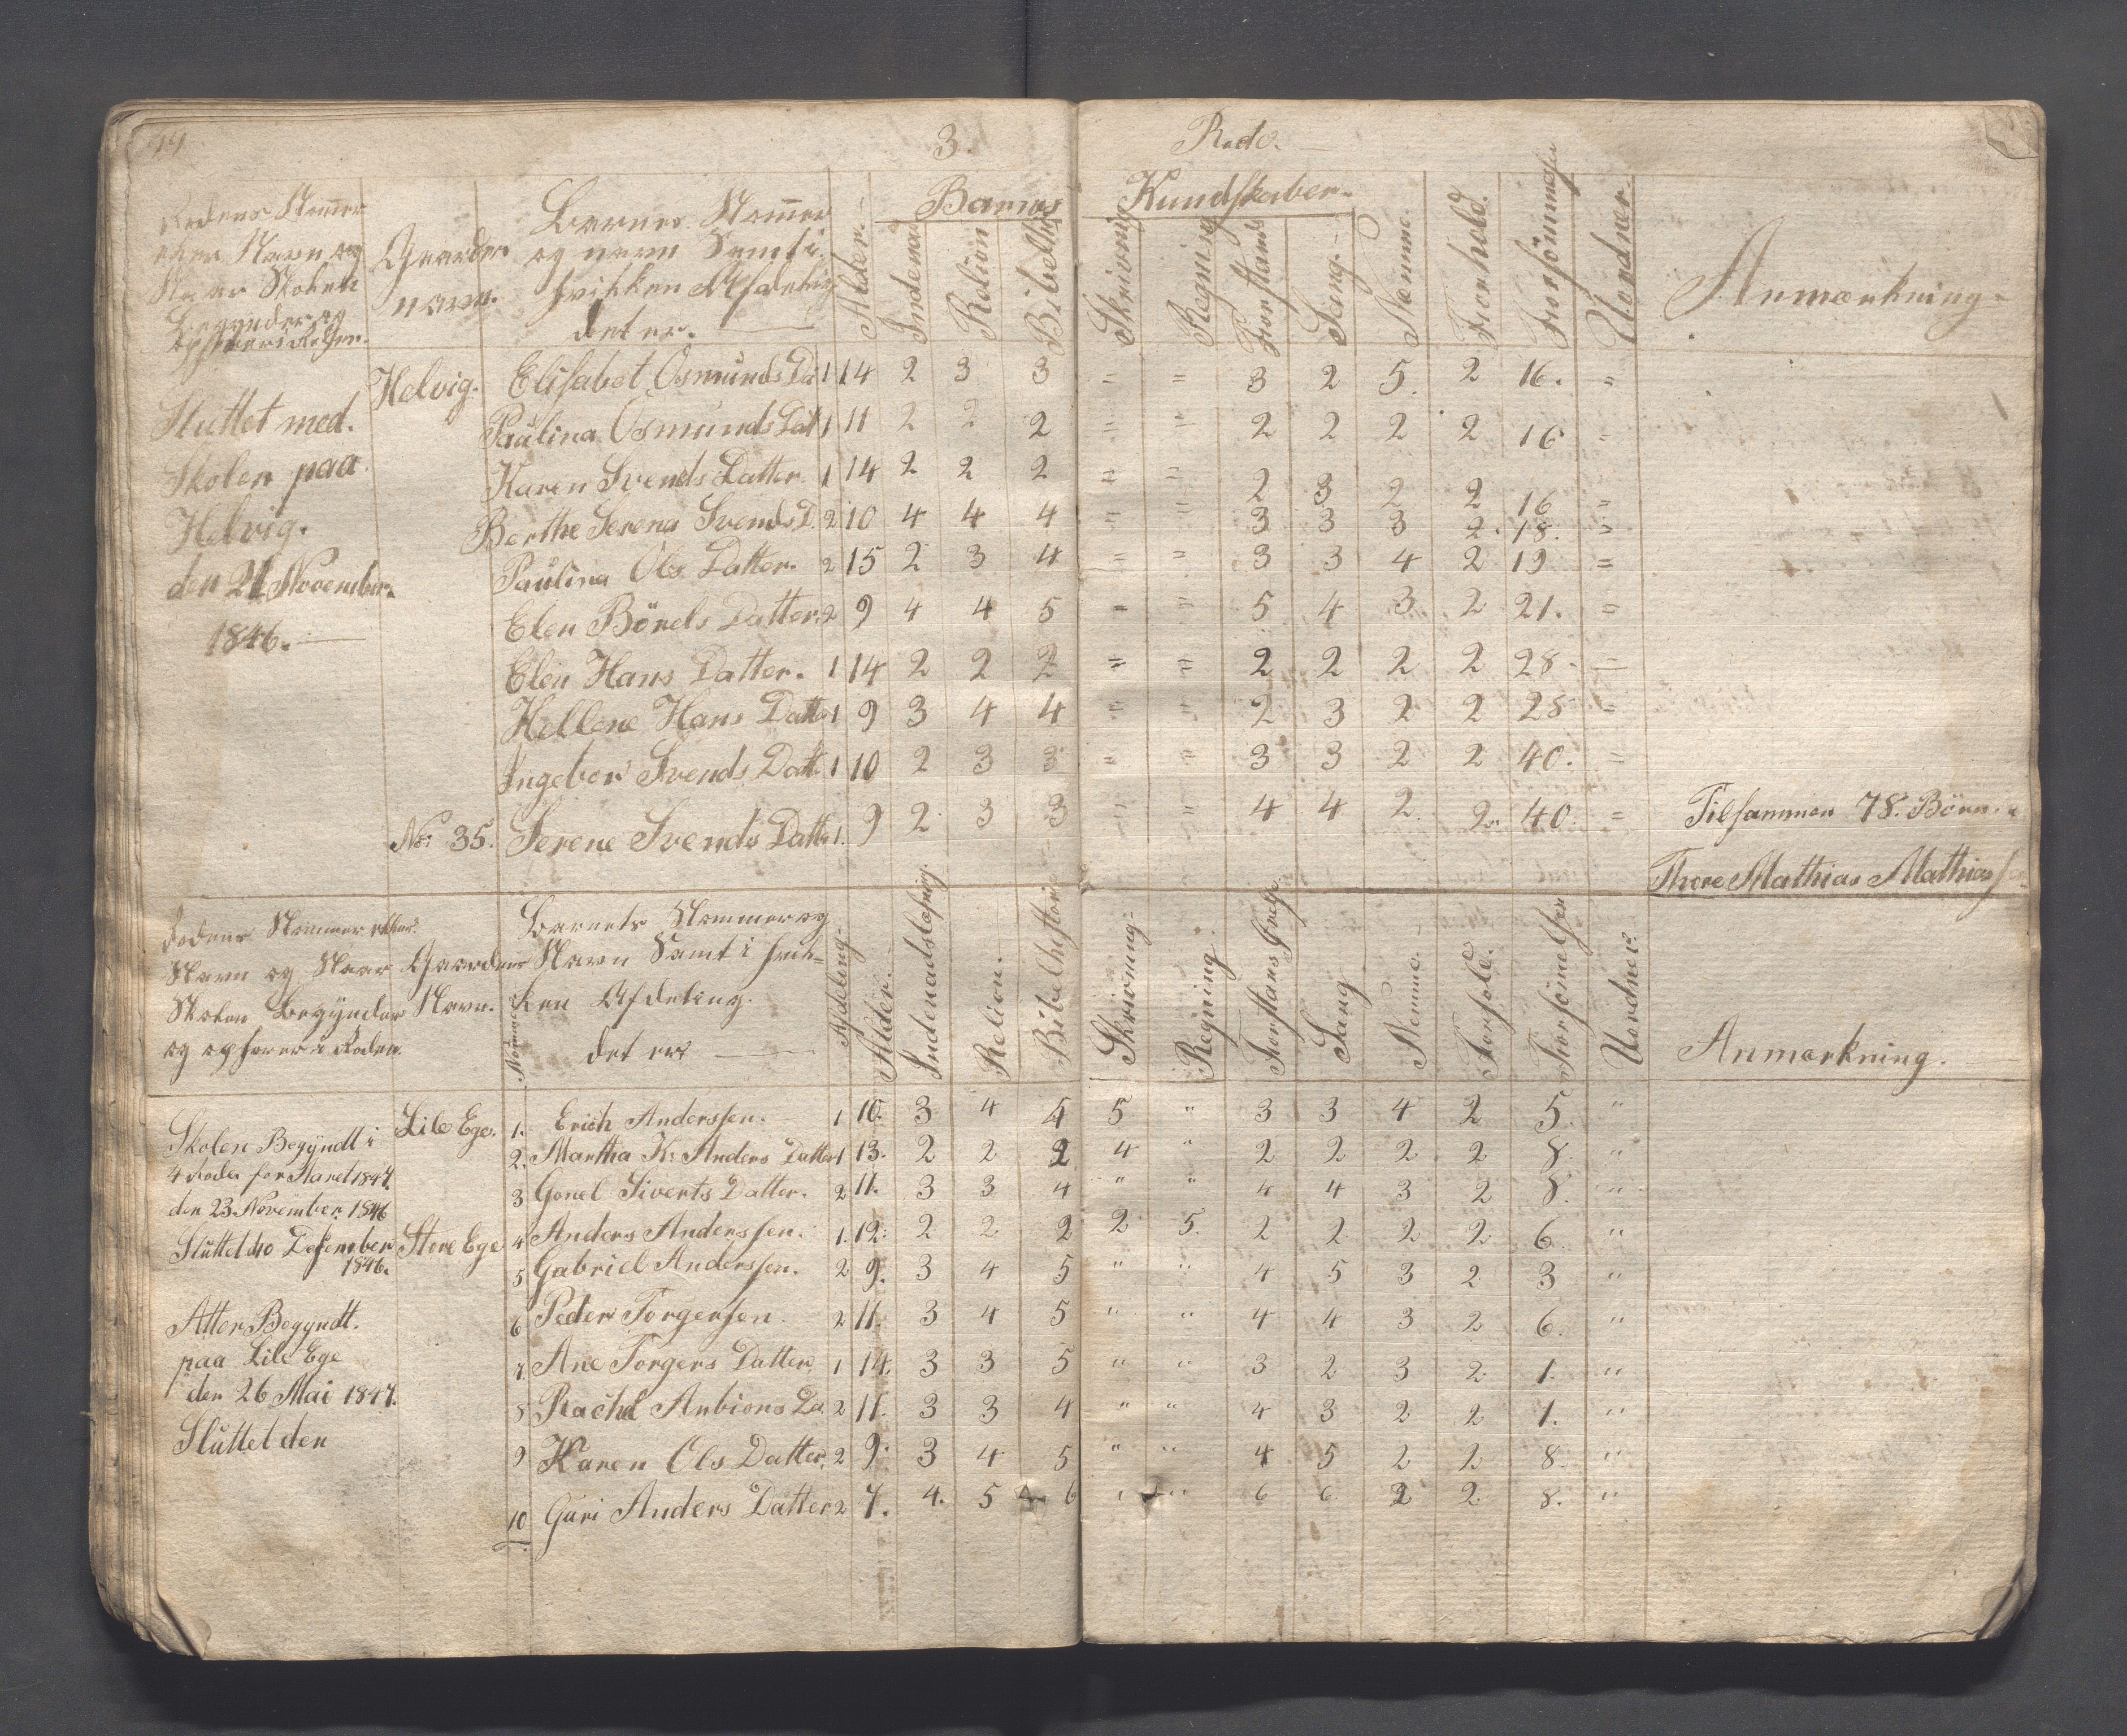 3. Rode.
Barnets Kundskaber.
Rodens Nommer
eller Navn og
Naar Skolen
Begynder og
ophører i Roden.
Gaardens
navn.
Barnes Nommer
og navn Samt i
hvilken Afdeling
det er.
Alder. Indenad Relion Bibelhi Skrivning Regning Forstand Sang. Stemme. Forhold. Forsömmelser Uordner. Anmærkning
Helvig. Elisabet Osmunds Da 1 14 2 3 3 = = 3 2 5. 2 16. =
Sluttet med. Paulina Osmunds Dat 1 11 2 2 2 = = 2 2 2 2 16 =
Skolen paa Karen Svends Datter 1 14 2 2 2 = = 2 3 2 2 16 =
Helvig. Berthe Serena Svends D. 2 10 4 4 4 = = 3 3 3 2. 18. =
den 21 November. Paulina Ols Datter. 2 15 2 3 4 = = 3 3 4 2 19 =
1846. Elen Börels Datter. 2 9 4 4 5 = = 5 4 3 2 21. =
Elen Hans Datter. 1 14 2 2 2 = = 2 2 2 2 28. =
Hellene Hans Datter 1 9 3 4 4 = = 2 3 2 2 28 =
Ingebor Svends Datt 1 10 2 3 3 = = 3 3 2 2 40. =
No: 35. Serene Svends Datte 1. 9 2 3 3 = = 4 4 2. 2. 40. = Tilsammen 78. Börn.
Thore Mathias Mathias
Rodens Nommer eller
Navn og Naar
Skolen Begynder
og ophører i Roden.
Gaardens
Navn.
Nommer
Barnets Nommer og
Navn Samt i hvil-
ken Afdeling.
det er
Afdeling. Alder. Indenadslæsning Relion. Bibelhistori Skrivning. Regning. Forstans Sang Stemme. Forhold. Forsömelser Uordner. Anmærkning.
Skolen Begyndt i Lile Ege. 1. Erich Anderssen. 1 10. 3 4 4 5 " 3 3 4 2 5. "
4 Roder for Aaret 1847. 2. Martha K: Anders Datter 1 13. 2 2 2 4 " 2 2 2 2 8. "
den 23 November. 1846 3 Gonel Siverts Datter. 2 11. 3 3 4 " " 4 4 3 2 8. "
Sluttet d 10 Desember Store Ege 4 Anders Anderssen. 1. 12. 2 2 2 2 5. 2 2 2 2 6. "
1846. 5 Gabriel Anderssen. 2 9. 3 4 5 " " 4 5 3 2 3 "
Atter Begyndt. 6 Peder Torgersen. 2 11. 3 4 5 " " 4 4 3 2 6. "
paa Lile Ege 7. Ane Torgers Datter. 1 14. 3 3 5 " " 3 2 3 2 1. "
den 26 Mai 1847. 8 Rachel Anbions Da 2 11. 3 3 4 " " 4 3 2 2 1. "
Sluttet den 9 Karen Ols Datter. 2 9. 3 4 5 " " 4 5 2 2 8. "
10 Guri Anders Datter 2 7. 4. 5 6 " " 6 6 2 2 8. "